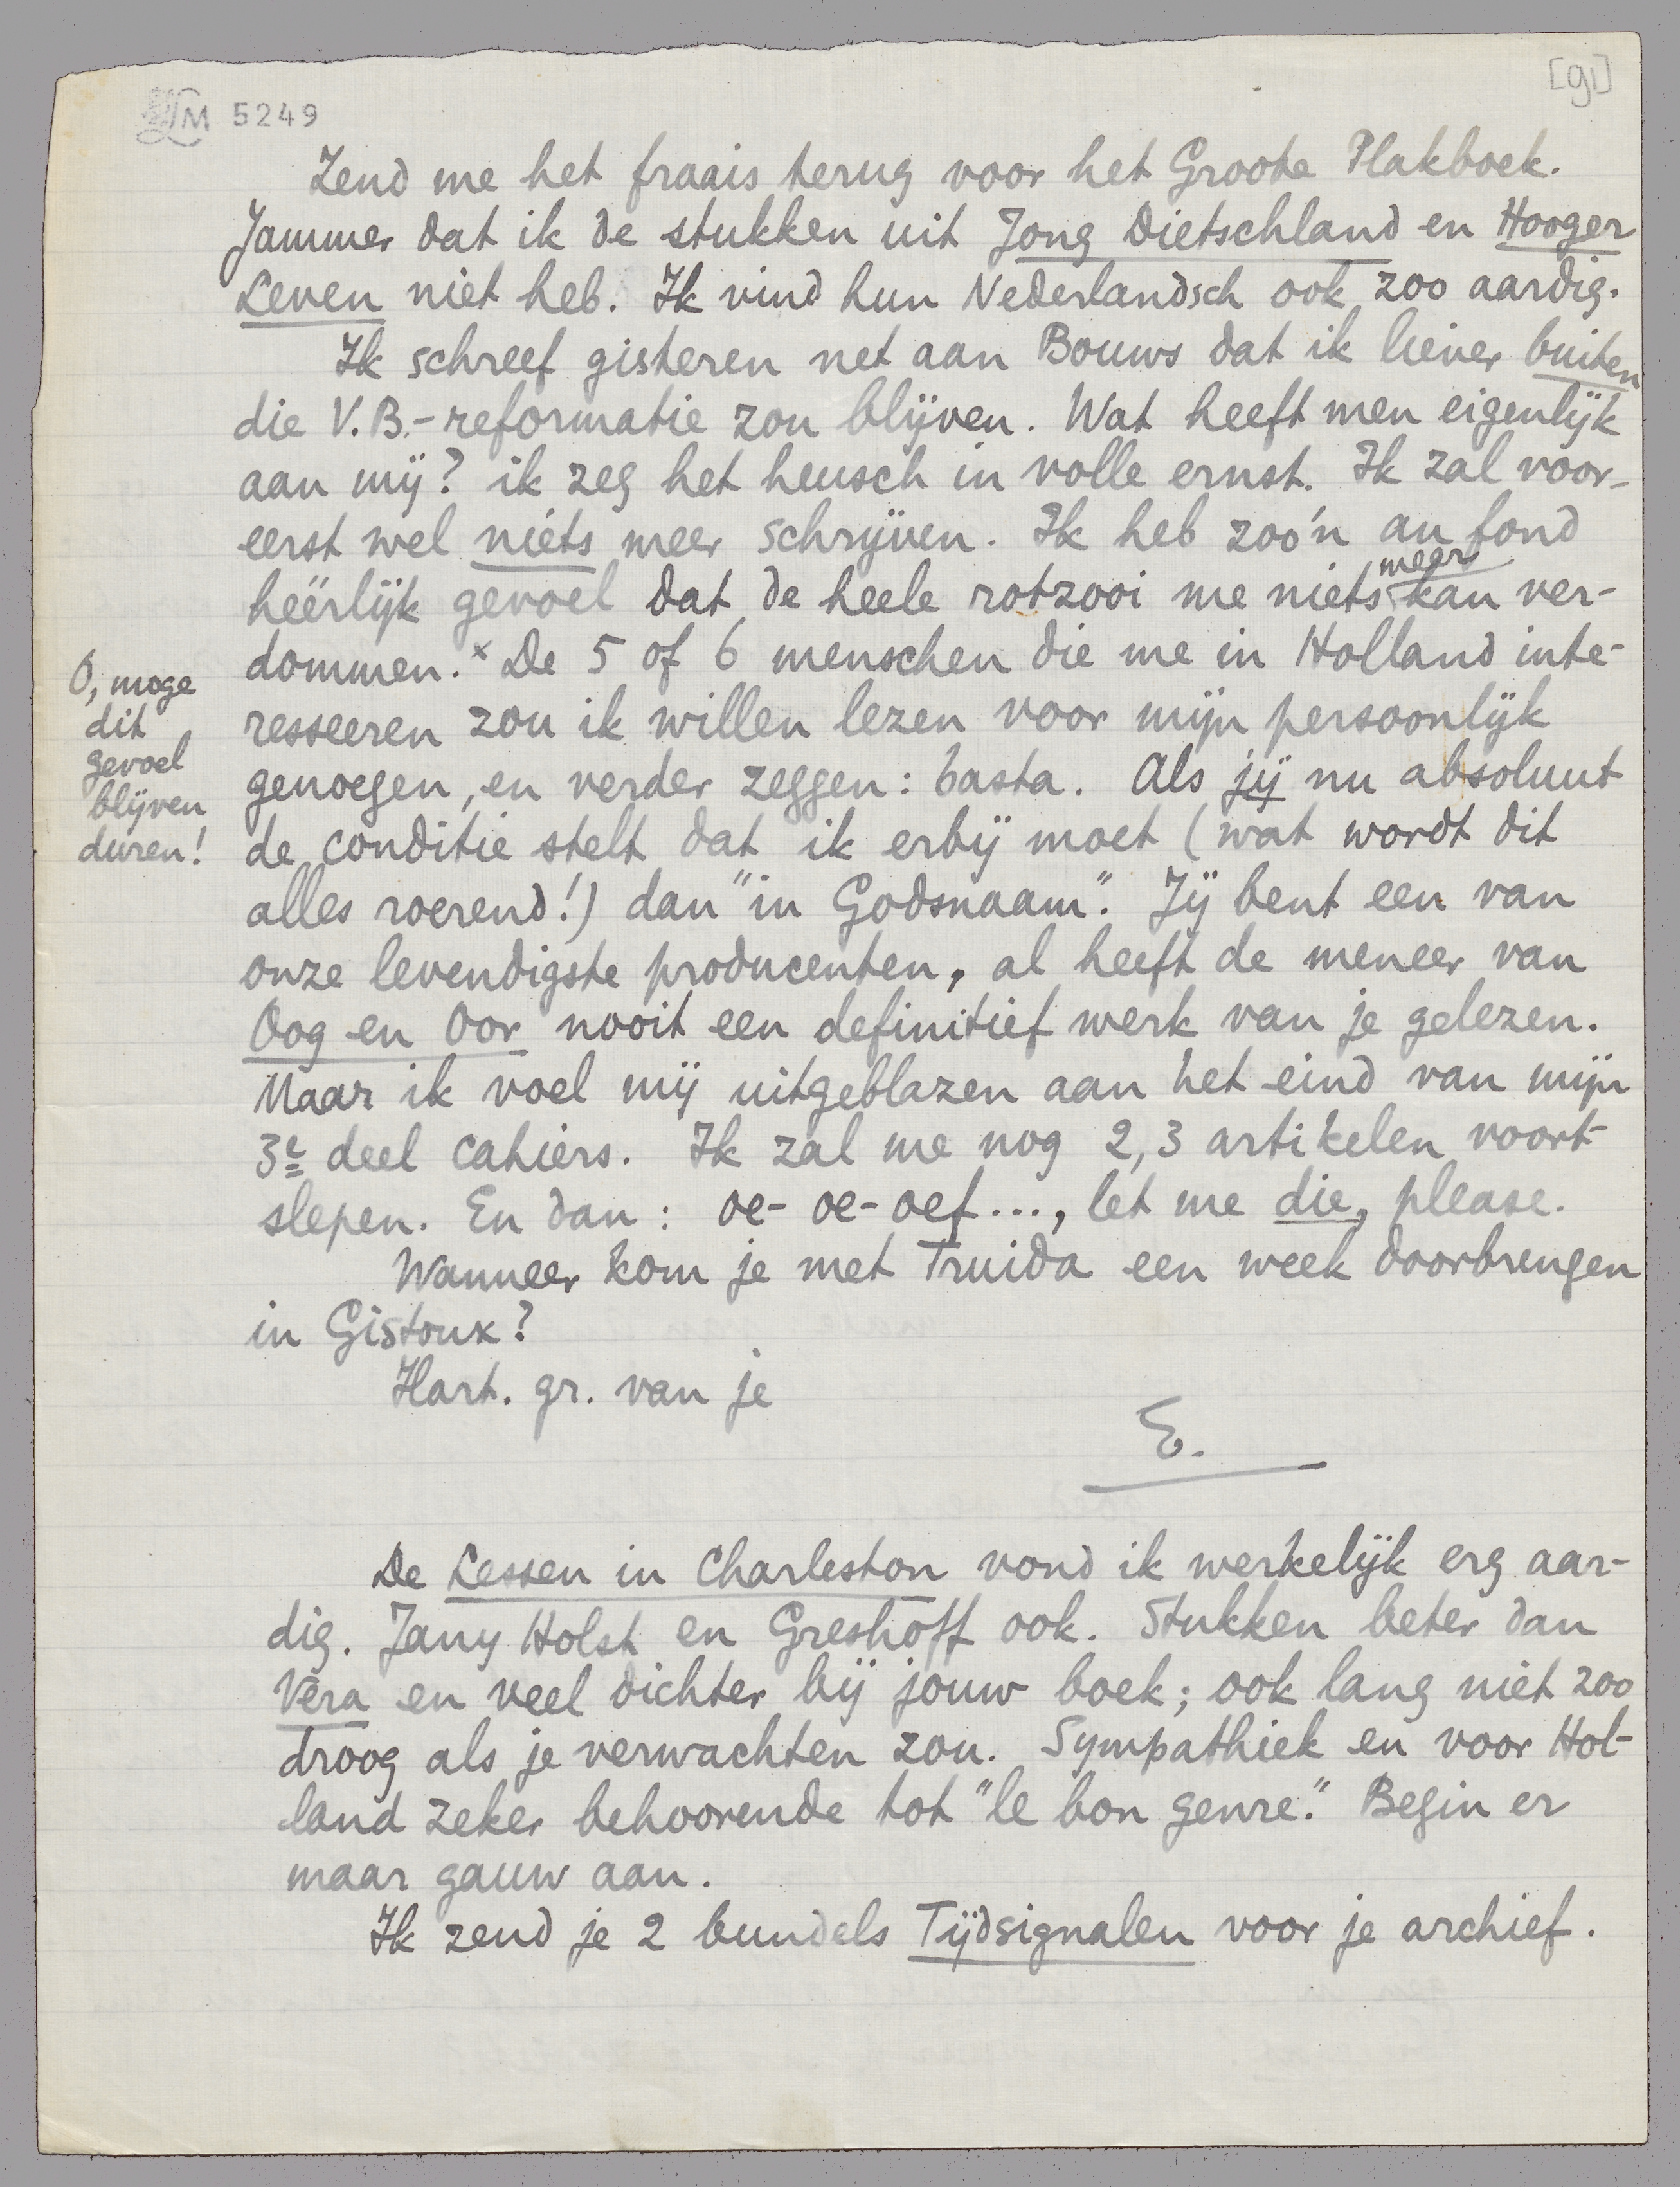 [91]
LM 5249
Zend me het fraais terug voor het Groote Plakboek.
Jammer dat ik de stukken uit Jong Dietschland en Hooger
Leven niet heb. Ik vind hun Nederlandsch ook zoo aardig.
Ik schreef gisteren net aan Bouws dat ik liever buiten
die V.B.-reformatie zou blijven. Wat heeft men eigenlijk
aan mij? ik zeg het heusch in volle ernst. Ik zal voor-
eerst wel niets meer schrijven. Ik heb zoo'n au fond
heerlijk gevoel dat de heele rotzooi me niets meer kan ver-
dommen.× De 5 of 6 menschen die me in Holland inte-
resseeren zou ik willen lezen voor mijn persoonlijk
genoegen, en verder zeggen: basta. Als jij nu absoluut
de conditie stelt dat ik erbij moet (wat wordt dit
alles roerend!) dan "in Godsnaam". Jij bent een van
onze levendigste producenten, al heeft de meneer van
Oog en Oor nooit een definitief werk van je gelezen.
Maar ik voel mij uitgeblazen aan het eind van mijn
3e deel cahiers. Ik zal me nog 2, 3 artikelen voort-
slepen. En dan: oe- oe- oef..., let me die, please.
Wanneer kom je met Truida een week doorbrengen
in Gistoux?
Hart. gr. van je
E.
O, moge
dit
gevoel
blijven
duren!
De Lessen in Charleston vond ik werkelijk erg aar-
dig. Jany Holst en Greshoff ook. Stukken beter dan
Vera en veel dichter bij jouw boek; ook lang niet zoo
droog als je verwachten zou. Sympathiek en voor Hol-
land zeker behoorende tot "le bon genre." Begin er
maar gauw aan.
Ik zend je 2 bundels Tijdsignalen voor je archief.